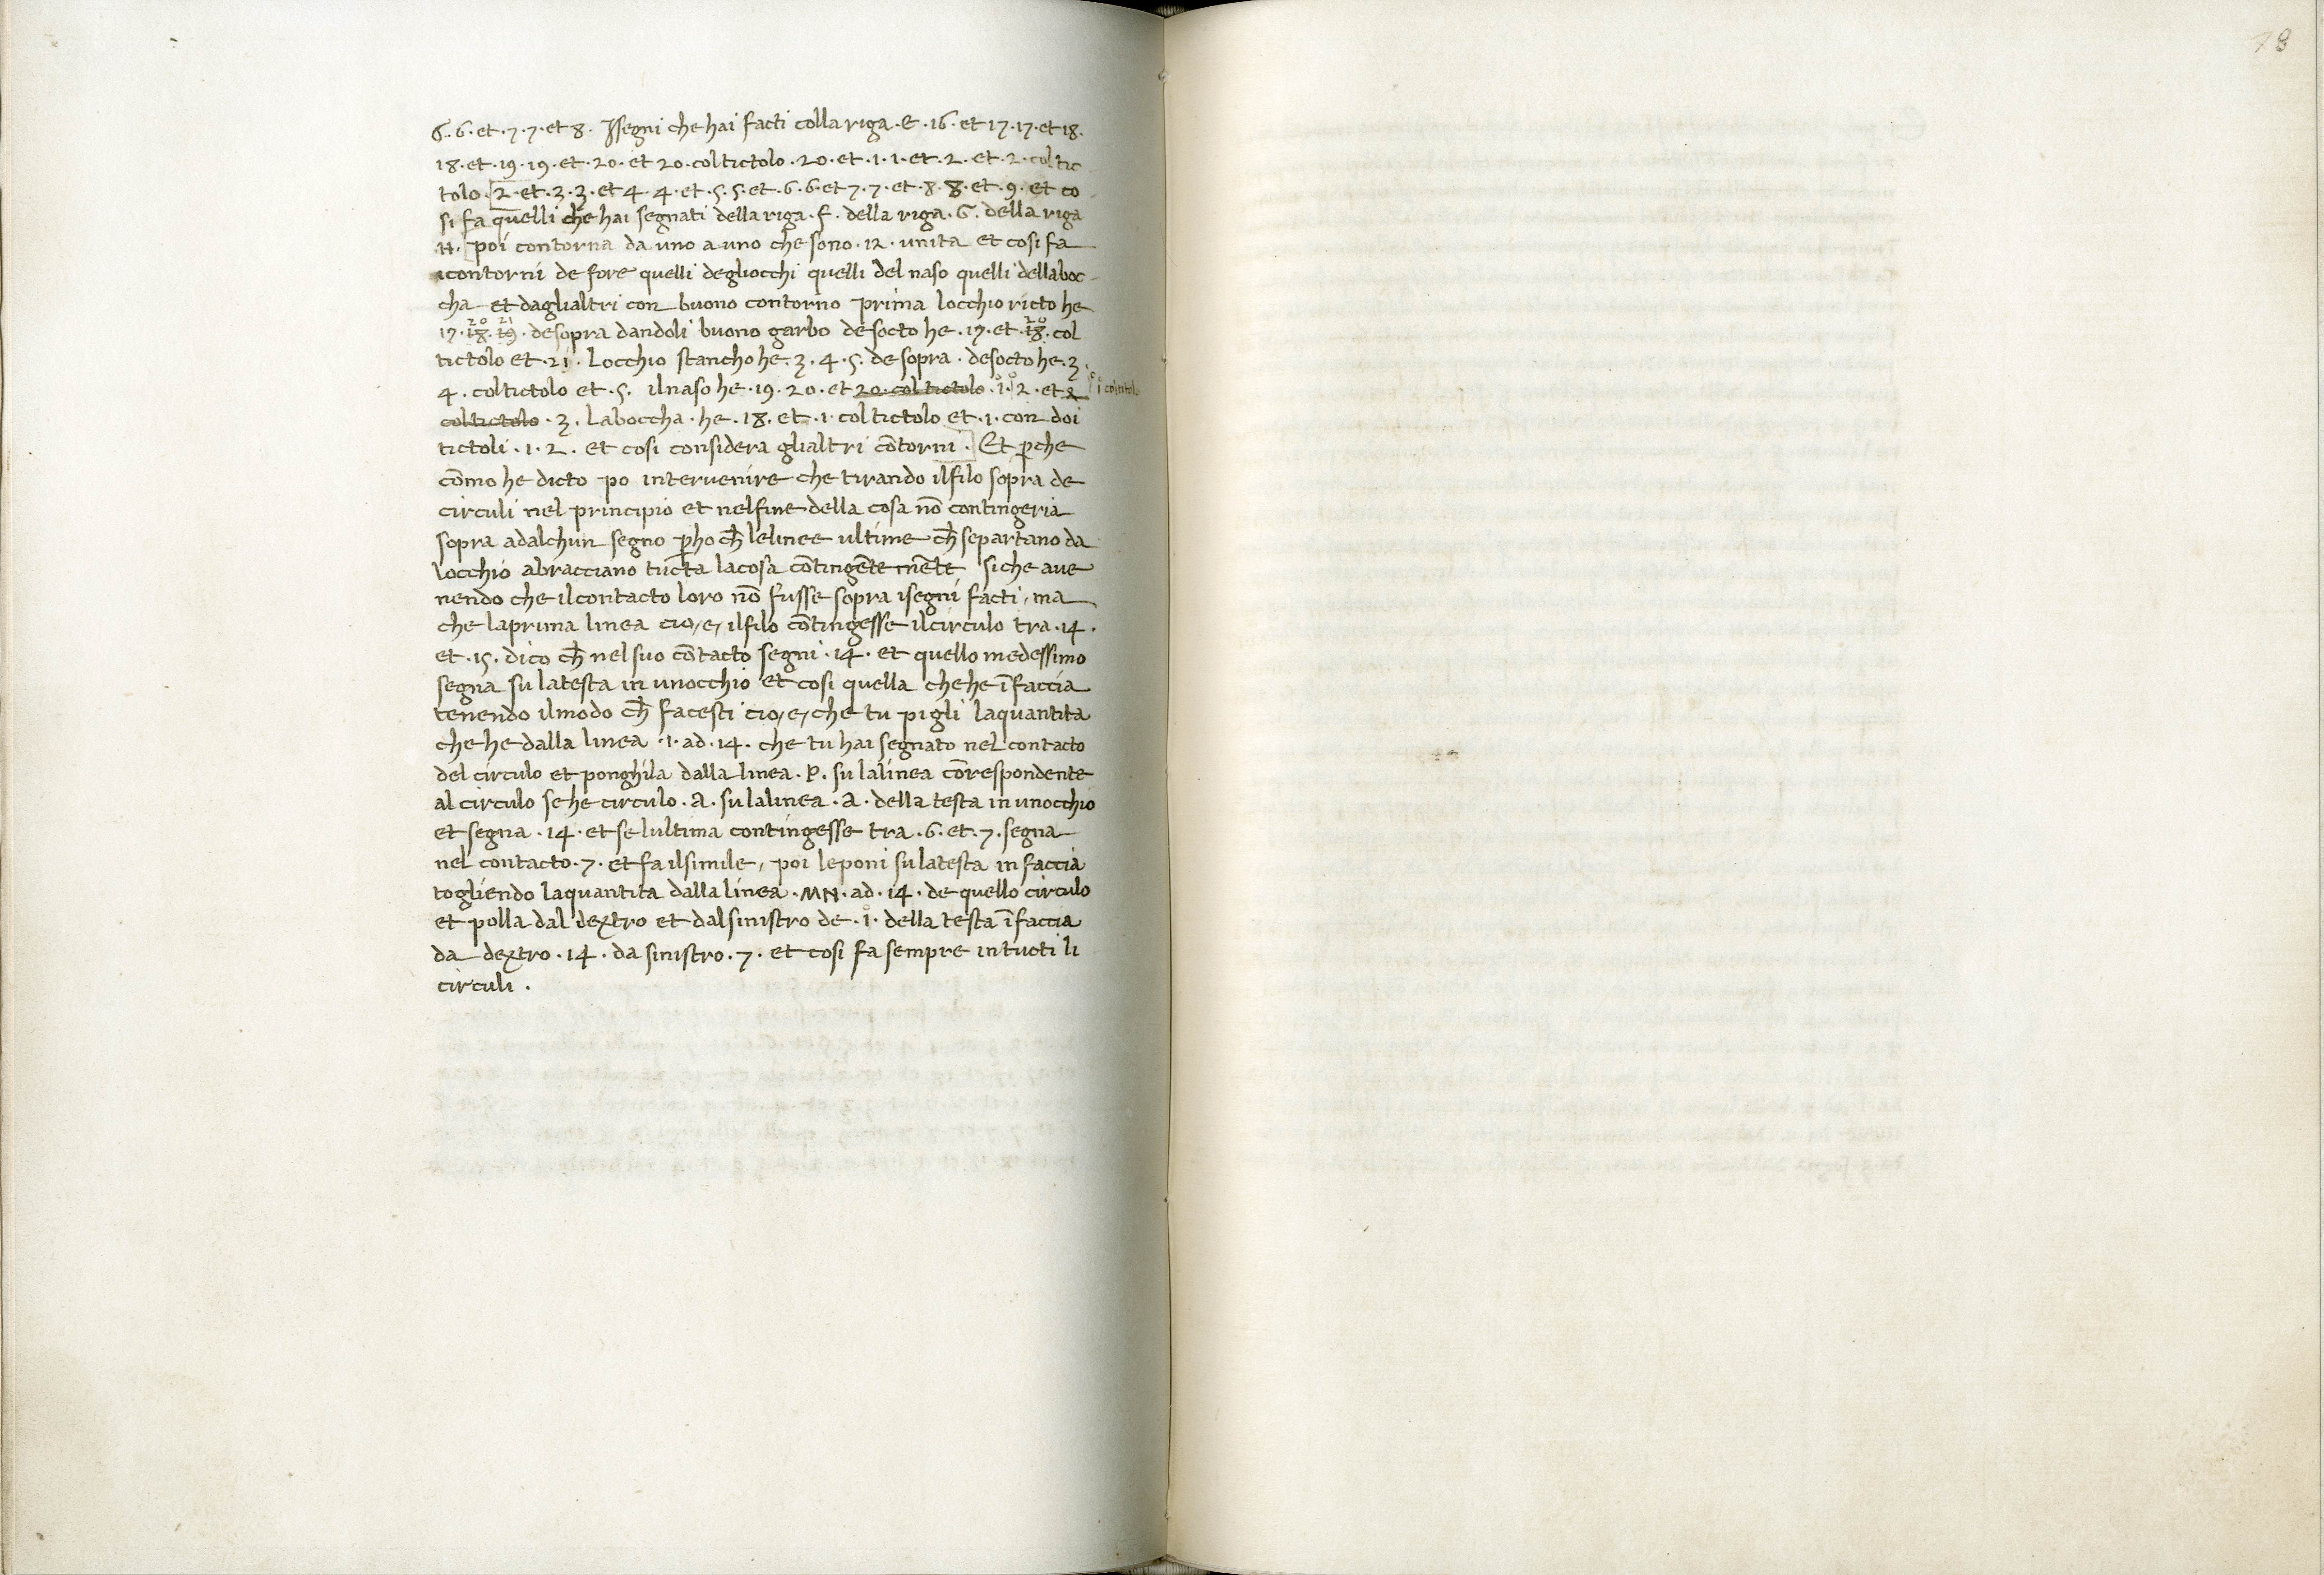 78
6. 6. et .7 7. et 8. Isegni che hai facti colla riga .E. 16. et 17. 17. et 18.
18. et .19. 19. et .20. et 20. col tictolo .20. et .1. 1. et .2. et .2. col tic
tolo .2. et .3. 3. et 4. 4. et .5. 5. et .6. 6. et 7. 7. et .8. 8. et .9. et co
si fa quelli che hai segnati della riga .F. della riga .G. della riga
H. poi contorna da uno a uno che sono .12. unita et cosi fa
icontorni de fore quelli degliocchi quelli del naso quelli dellaboc
cha et daglialtri con buono contorno prima locchio ricto he
17. 18. 19. desopra dandoli buono garbo desocto he .17. et .18. col
tictolo et .21. Locchio stancho he .3. 4. 5. de sopra. desocto he .3.
4. col tictolo et .5. ilnaso he .19. 20. et 20. col tictolo .1. 2. et 2 1 col titolo
col tictolo .3. laboccha. he .18. et .1. col tictolo et .1. con doi
tictoli .1. 2. et cosi considera glialtri cōtorni. Et p̄che
cōmo he dicto po intervenire che tirando ilfilo sopra de
circuli nel principio et nelfine della cosa nō contingeria
sopra adalchun segno p̄ho ch̄ lelinee ultime ch̄ separtano da
locchio abracciano tucta lacosa cōtingētemēte siche ave
nendo che ilcontacto loro nō fusse sopra isegni facti, ma
che laprima linea cio,e, ilfilo cōtingesse ilcirculo tra .14.
et .15. dico ch̄ nel suo cōtacto segni .14. et quello medessimo
segna su latesta in unocchio et cosi quella chehe ī faccia
tenendo ilmodo ch̄ facesti cio,e, che tu pigli laquantita
che he dalla linea .1. ad .14. che tu hai segnato nel contacto
del circulo et ponghila dalla linea .P. su lalinea cōrespondente
al circulo sehe circulo .A. su lalinea .A. della testa in unocchio
et segna .14. et se lultima contingesse tra .6. et .7. segna
nel contacto .7. et fa ilsimile, poi leponi su latesta in faccia
togliendo laquantita dalla linea .MN. ad .14. de quello circulo
et polla dal dextro et dalsinistro de .1. della testa ī faccia
da dextro .14. da sinistro .7. et cosi fa sempre in tucti li
circuli.